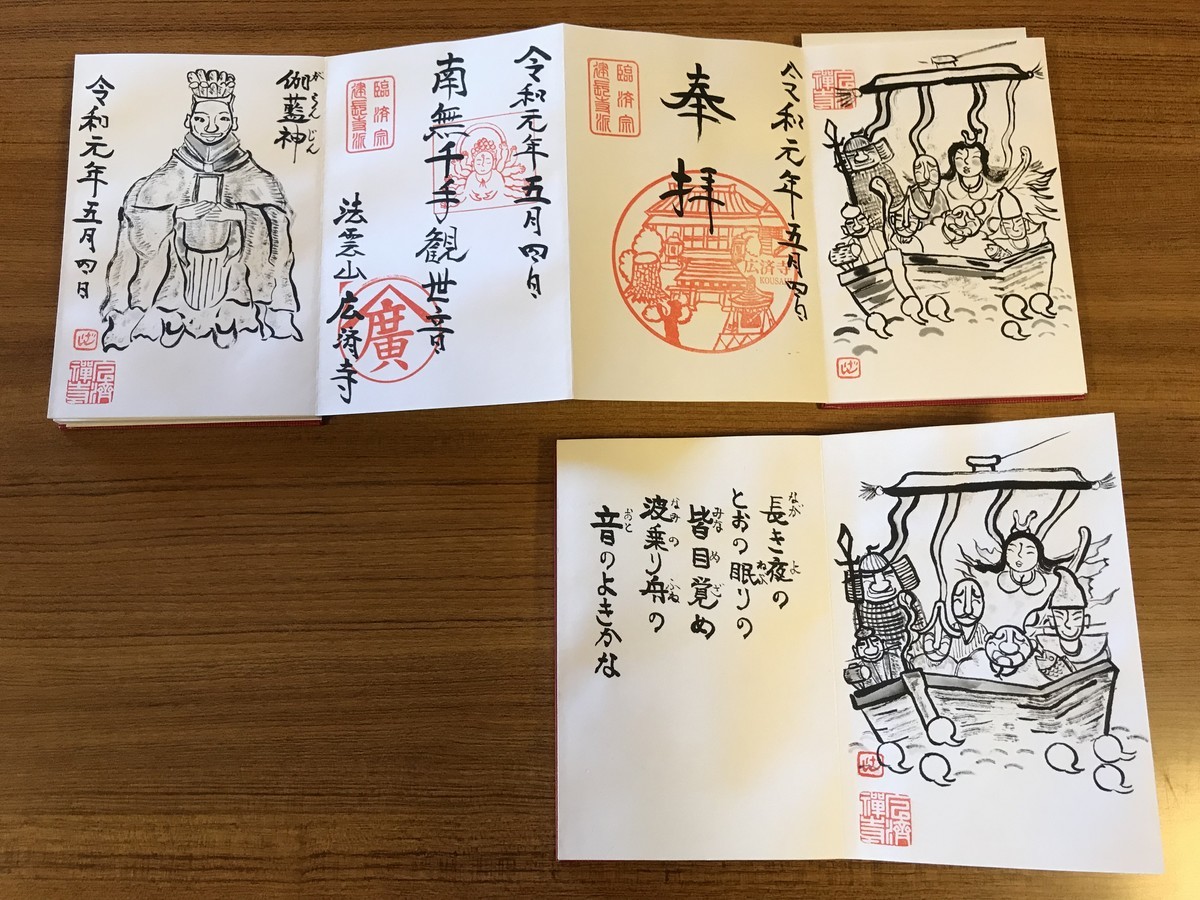 令和元年五月四日
奉拝
臨済宗
建長寺派
広済寺
KOUSAI
令和元年五月四日
南無千手観世音
法雲山広済寺
廣
臨済宗
建長寺派
伽藍神
がらんじん
令和元年五月四日
広濟
禪寺
広濟
禪寺
長き夜の
なが よ
とおの眠りの
ねぶ
皆目覚め
みな め ざ
波乗り舟の
なみ の ふね
音のよきかな
おと
広濟
禪寺